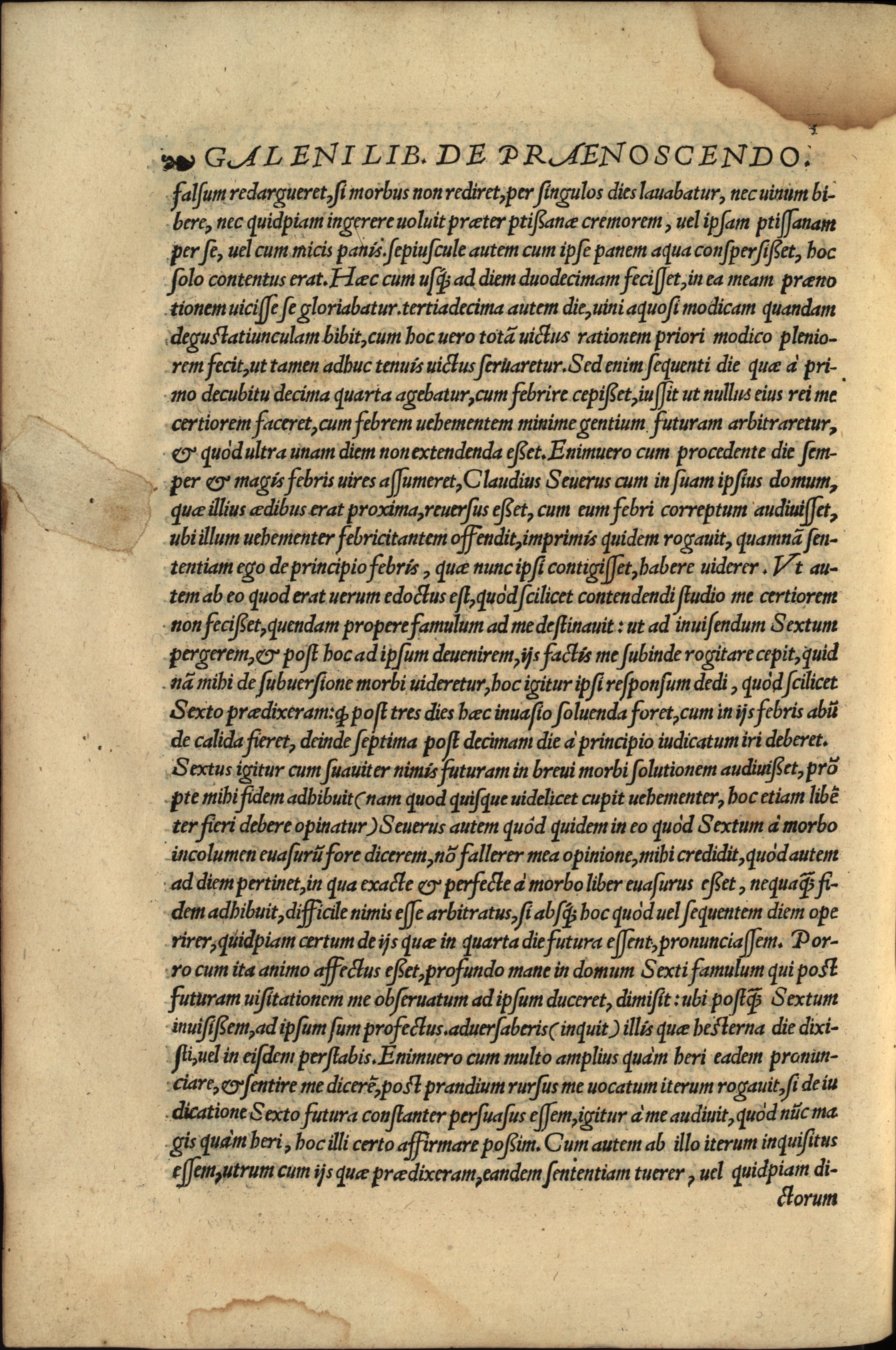 GALENI LIB. DE PRAENOSCENDO.
falsum redargueret, si morbus non rediret, per singulos dies lauabatur, nec uinum bi-
bere, nec quidpiam ingerere uoluit præter ptißanæ cremorem, uel ipsam ptissanam
per se, uel cum micis panis. sepiuscule autem cum ipse panem aqua conspersißet, hoc
solo contentus erat. Hæc cum usq; ad diem duodecimam fecisset, in ea meam præno
tionem uicisse se gloriabatur. tertiadecima autem die, uini aquosi modicam quandam
degustatiunculam bibit, cum hoc uero totã uictus rationem priori modico plenio-
rem fecit, ut tamen adhuc tenuis uictus seruaretur. Sed enim sequenti die quæ à pri-
mo decubitu decima quarta agebatur, cum febrire cepißet, iussit ut nullus eius rei me
certiorem faceret, cum febrem uehementem minime gentium futuram arbitraretur,
& quòd ultra unam diem non extendenda eßet. Enimuero cum procedente die sem-
per & magis febris uires assumeret, Claudius Seuerus cum in suam ipsius domum,
quæ illius ædibus erat proxima, reuersus eßet, cum eum febri correptum audiuisset,
ubi illum uehementer febricitantem offendit, imprimis quidem rogauit, quamnã sen-
tentiam ego de principio febris, quæ nunc ipsi contigisset, habere uiderer. Vt au-
tem ab eo quod erat uerum edoctus est, quòd scilicet contendendi studio me certiorem
non fecißet, quendam propere famulum ad me destinauit: ut ad inuisendum Sextum
pergerem, & post hoc ad ipsum deuenirem, ijs factis me subinde rogitare cepit, quid
nã mihi de subuersione morbi uideretur, hoc igitur ipsi responsum dedi, quòd scilicet
Sexto prædixeram: q̃ post tres dies hæc inuasio soluenda foret, cum in ijs febris abũ
de calida fieret, deinde septima post decimam die à principio iudicatum iri deberet.
Sextus igitur cum suauiter nimis futuram in breui morbi solutionem audiuißet, prõ
pte mihi fidem adhibuit (nam quod quisque uidelicet cupit uehementer, hoc etiam libẽ
ter fieri debere opinatur) Seuerus autem quòd quidem in eo quòd Sextum à morbo
incolumen euasurũ fore dicerem, nõ fallerer mea opinione, mihi credidit, quòd autem
ad diem pertinet, in qua exacte & perfecte à morbo liber euasurus eßet, nequaq̃ fi-
dem adhibuit, difficile nimis esse arbitratus, si absq; hoc quòd uel sequentem diem ope
rirer, quidpiam certum de ijs quæ in quarta die futura essent, pronunciassem. Por-
ro cum ita animo affectus eßet, profundo mane in domum Sexti famulum qui post
futuram uisitationem me obseruatum ad ipsum duceret, dimisit: ubi postq̃ Sextum
inuisißem, ad ipsum sum profectus. aduersaberis (inquit) illis quæ hesterna die dixi-
sti, uel in eisdem perstabis. Enimuero cum multo amplius quàm heri eadem pronun-
ciare, & sentire me dicerẽ, post prandium rursus me uocatum iterum rogauit, si de iu
dicatione Sexto futura constanter persuasus essem, igitur à me audiuit, quòd nũc ma
gis quàm heri, hoc illi certo affirmare poßim. Cum autem ab illo iterum inquisitus
essem, utrum cum ijs quæ prædixeram, eandem sententiam tuerer, uel quidpiam di-
ctorum